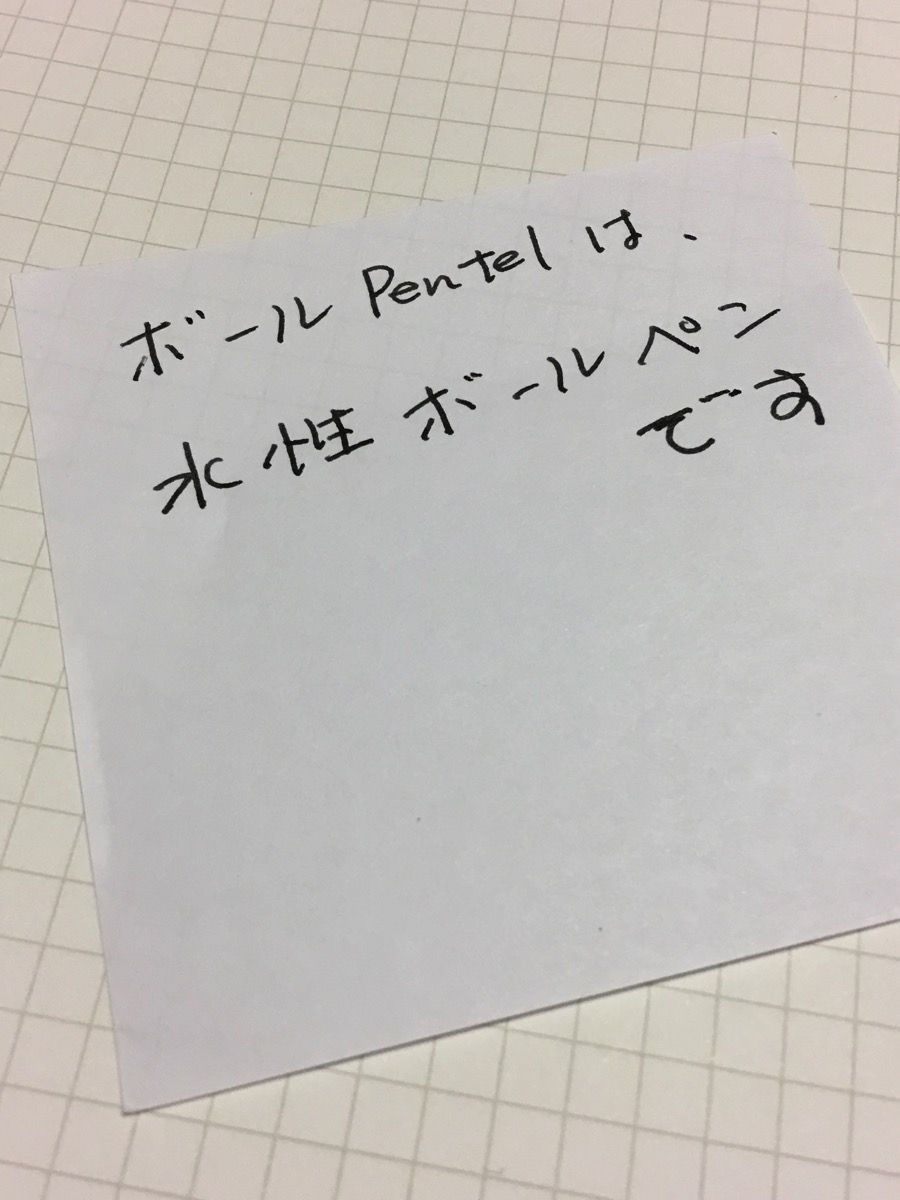 ボールPentelは、
水性ボールペン
です